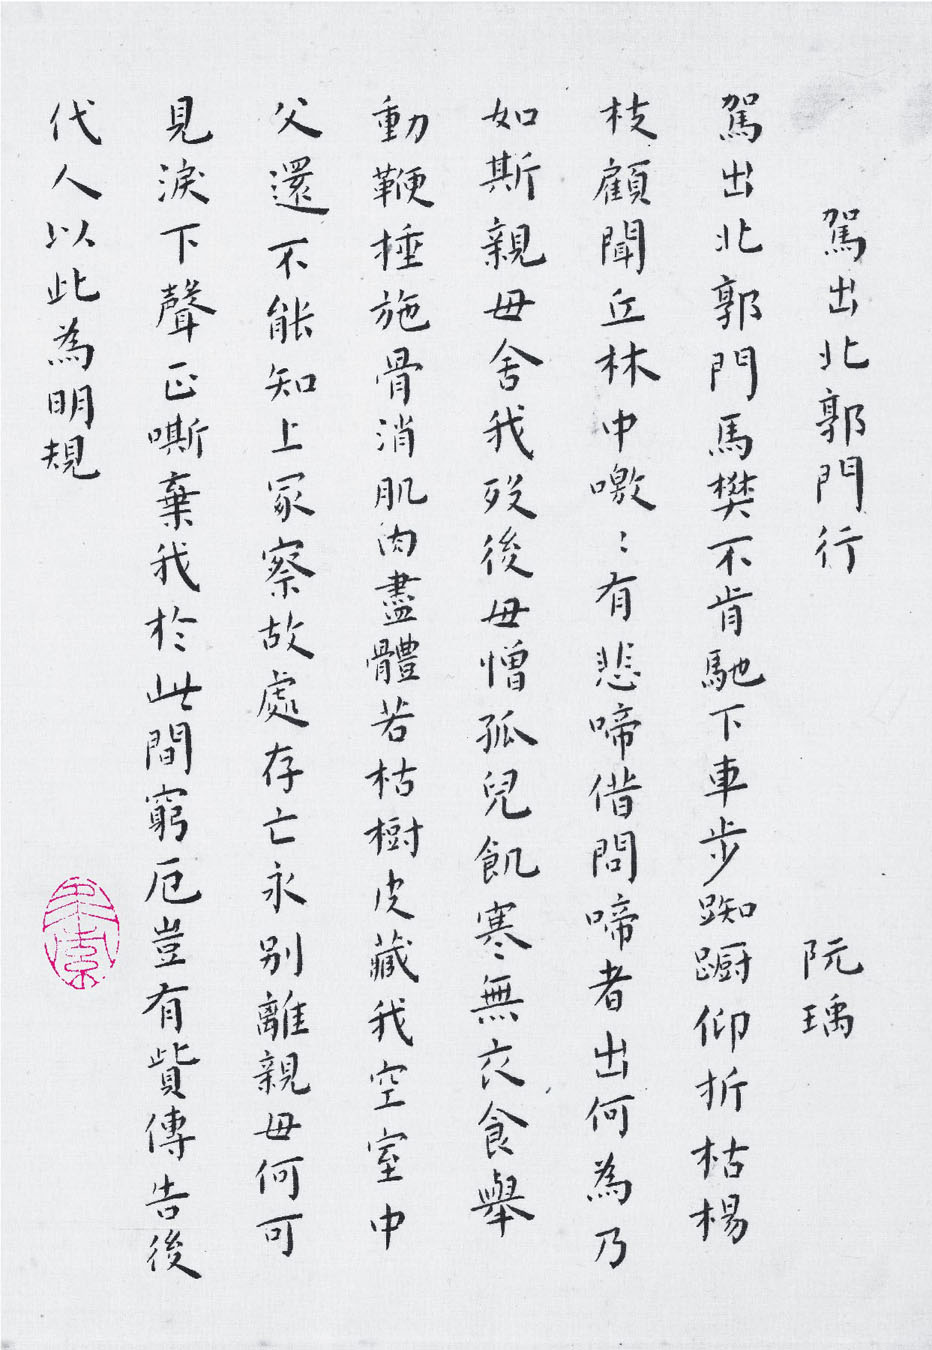 駕出北郭門行
阮瑀
駕出北郭門馬樊不肯馳下車步踟躕仰折枯楊
枝顧聞丘林中噭：有悲啼借問啼者出何為乃
如斯親母舍我歿後母憎孤兒飢寒無衣食舉
動鞭捶施骨消肌肉盡體若枯樹皮藏我空室中
父還不能知上冢察故處存亡永别離親母何可
見淚下聲正嘶棄我於此間窮厄豈有貲傳告後
代人以此為明規